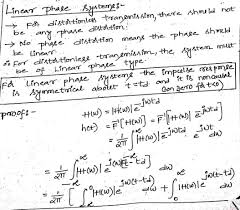 Linear phase Systems:-
→ For distortionless transmission, there should not
be any phase distortion.
→ No phase distortion means the phase should
be linear.
∴ For distortionless transmission, the system must
be of Linear phase type.
For Linear phase systems the impulse response
is symmetrical about t=td and it is noncausal
(non zero for t<0)
proof:-
H(ω) = |H(ω)| e^{-jωtd}
h(t) = F^{-1}[H(ω)] = F^{-1}[|H(ω)| e^{-jωtd}]
= 1/2π ∫ |H(ω)| e^{-jωtd} e^{jωt} dω
= 1/2π ∫ |H(ω)| e^{jω(t-td)} dω
= 1/2π [ ∫ |H(ω)| e^{jω(t-td)} dω + ∫ |H(ω)| e^{jω(t-td)} dω